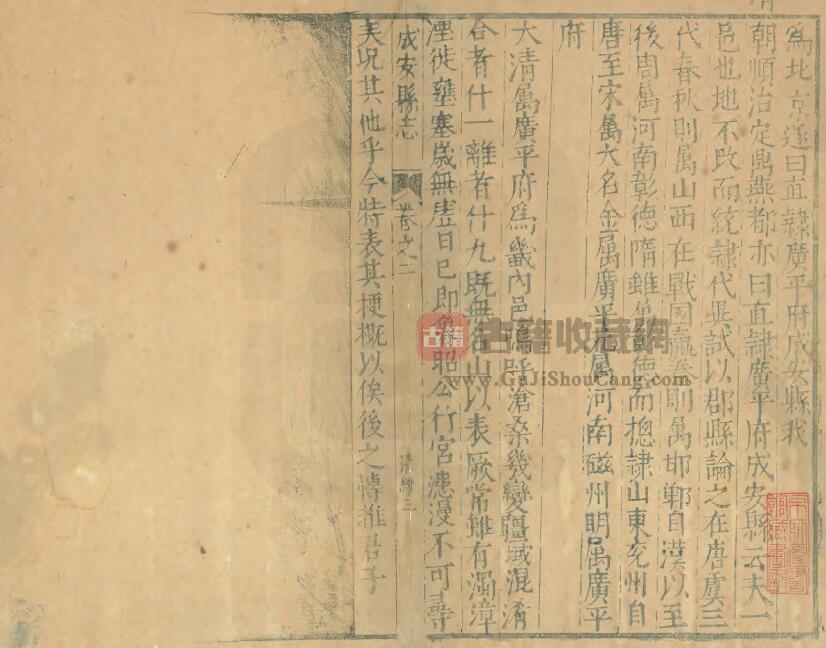 爲北京遂曰直隸廣平府成安縣我
清
朝順治定鼎燕都亦曰直隸廣平府成安縣云夫一
邑也地不改而統隸代異試以郡縣論之在唐虞三
代春秋則屬山西在戰國嬴秦則屬邯鄲自漢以至
後周屬河南彰德隋雖屬而摠隸山東兗州自
唐至宋屬大名金屬廣平元屬河南磁州明屬廣平
府
大清屬廣平府爲畿內邑嗚呼滄桑幾變疆域混淆
合者什一離者什九旣無名山以表厥常雖有濁漳
湮徙壅塞歲無虛日已即昭公行宮漶漫不可尋
成安縣志
卷之二
清續三
矣况其他乎今特表其梗槪以俟後之博雅君子
古籍
古籍收藏網
www.GuJiShouCang.com